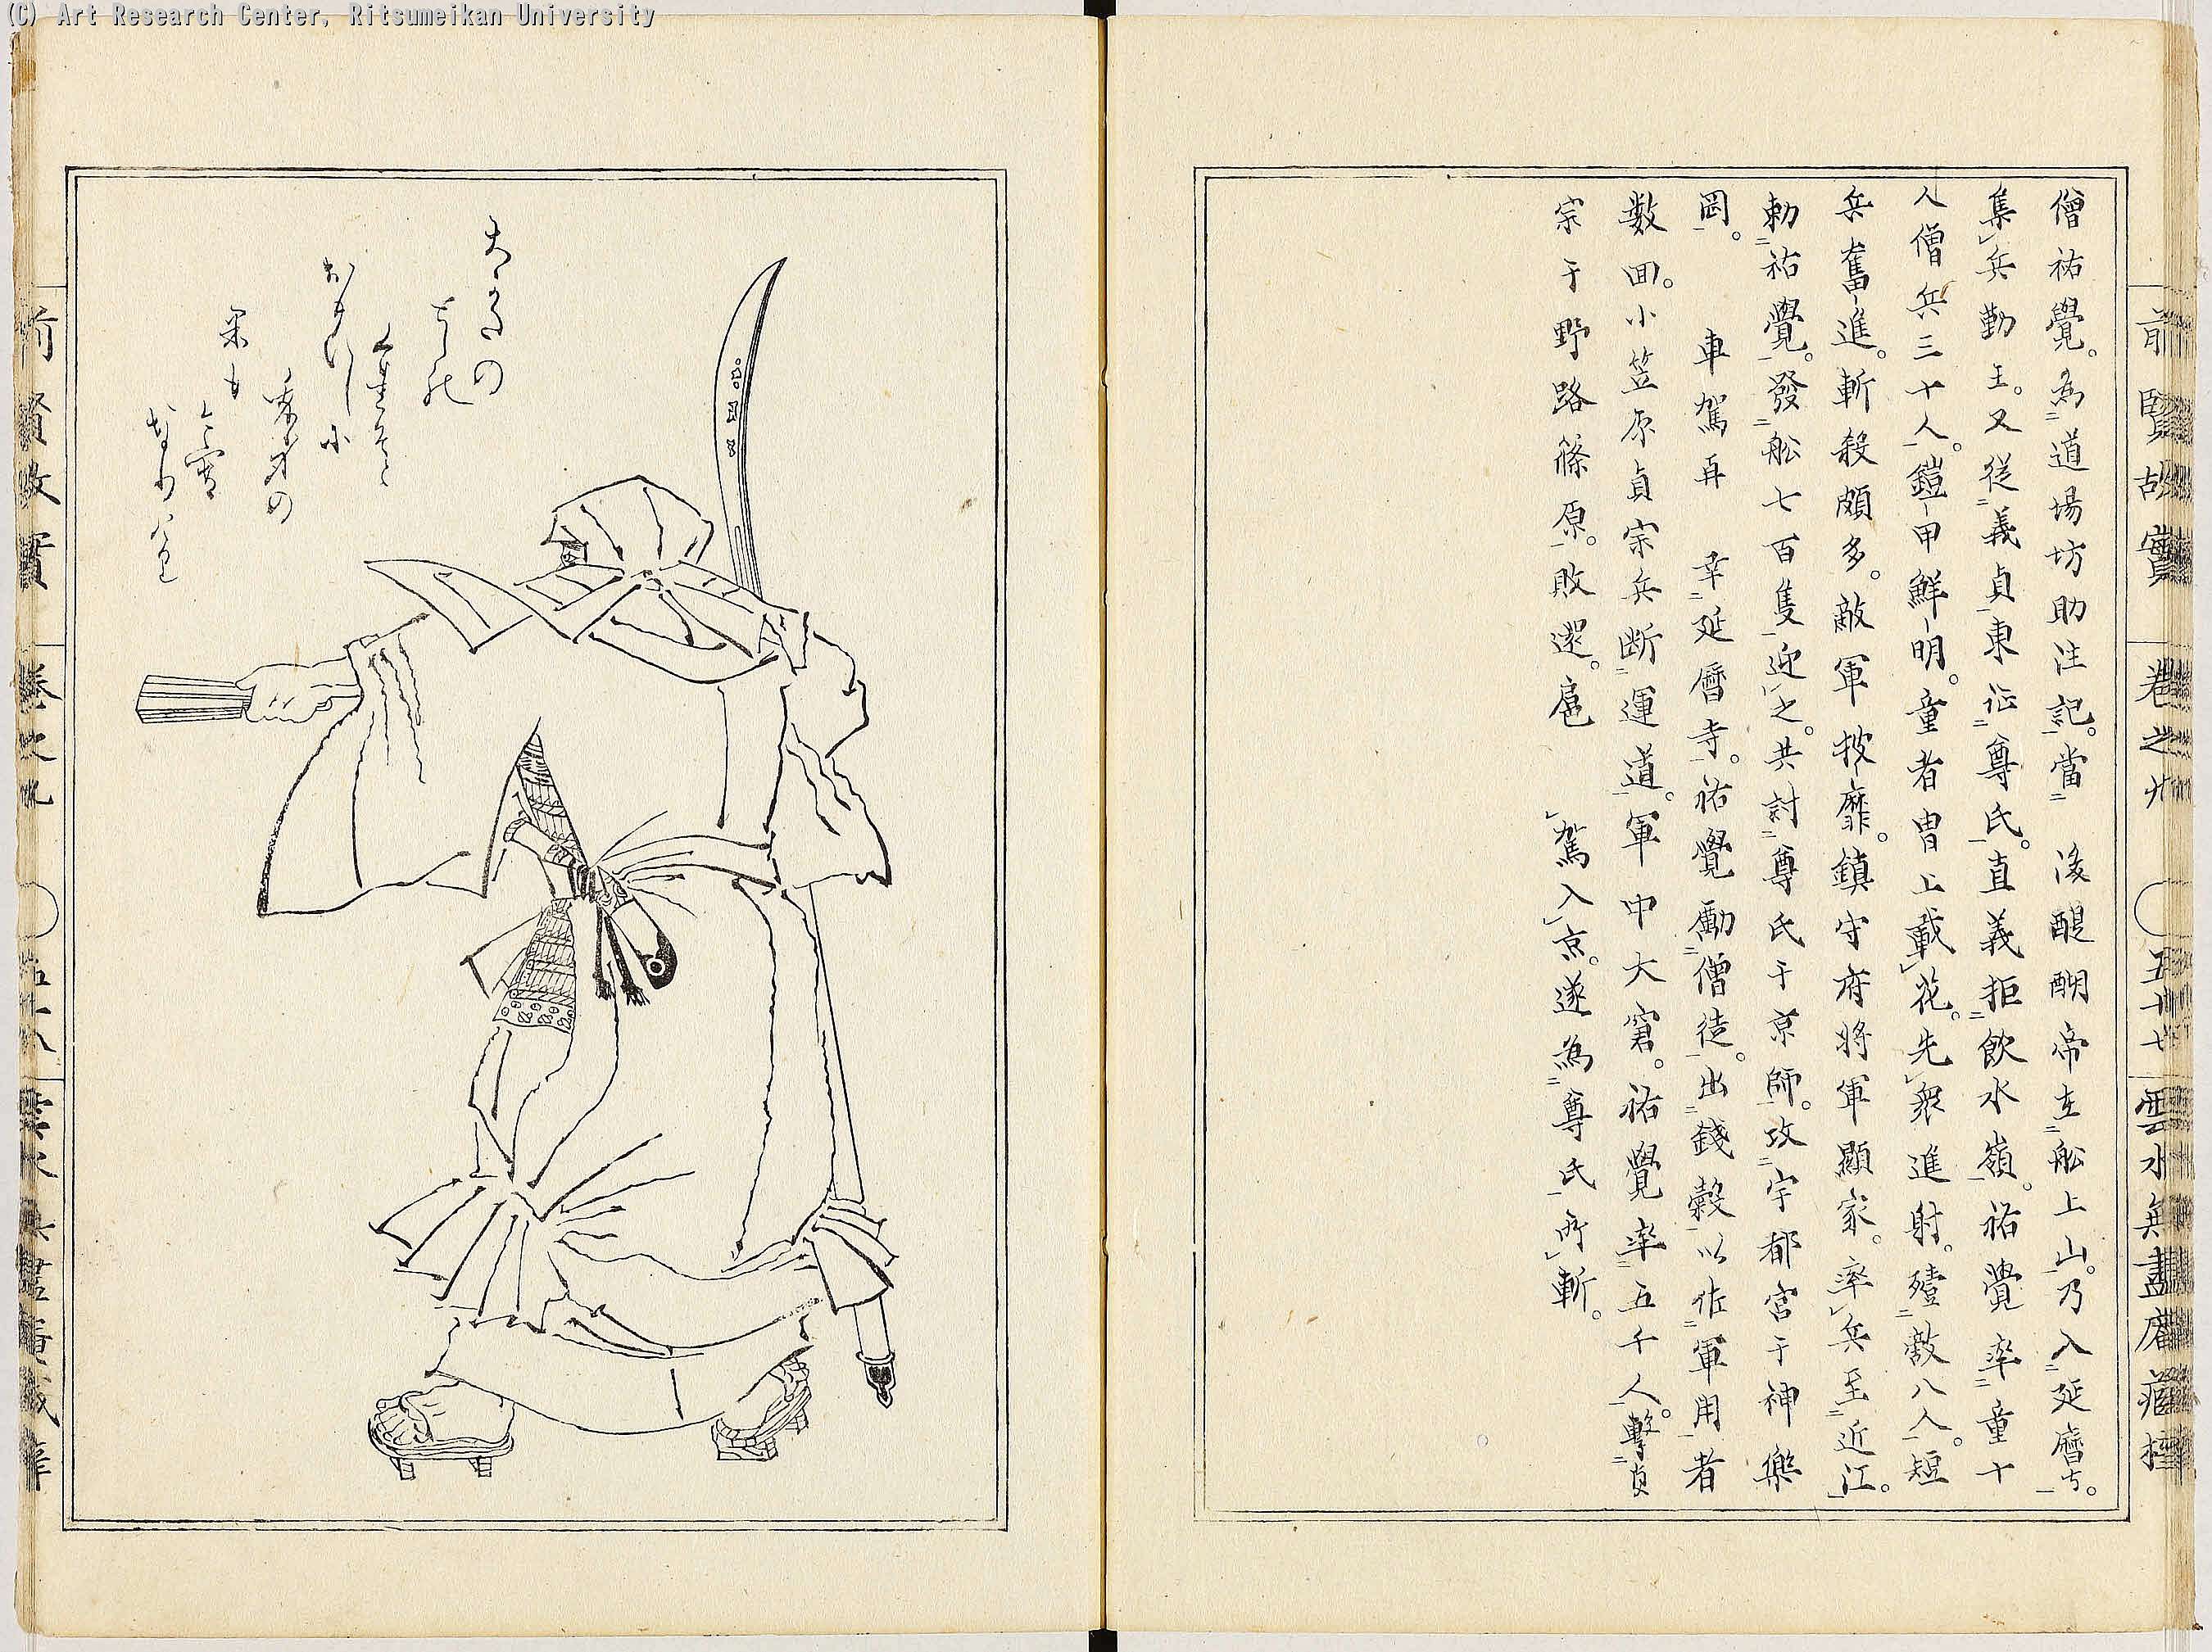 (C) Art Research Center, Ritsumeikan University
前賢故實 卷之九 五十七 雲水無盡庵藏梓
僧祐覺。為道場坊助注記。當 後醍醐帝在舩上山。乃入延曆寺。
集兵勤王。又從義貞東征尊氏。直義拒飲水嶺。祐覺率童十
人僧兵三十人。鎧甲鮮明。童者冑上戴花。先衆進射。殪敵八人。短
兵奮進。斬殺頗多。敵軍披靡。鎮守府將軍顯家。率兵至近江。
勅祐覺。發舩七百隻迎之。共討尊氏于京師。攻宇都宮于神樂
岡。 車駕再 幸延曆寺。祐覺勵僧徒。出錢穀以佐軍用者
數回。小笠原貞宗兵断運道。軍中大窘。祐覺率五千人。擊貞
宗于野路篠原。敗還。扈 駕入京。遂為尊氏所斬。